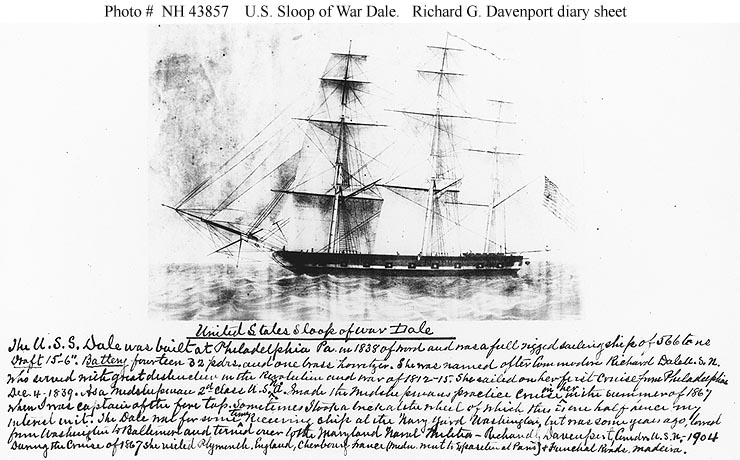 Photo # NH 43857 U.S. Sloop of War Dale. Richard G. Davenport diary sheet
United States Sloop of war Dale
The U.S.S. Dale was built at Philadelphia Pa. in 1838 of wood and was a full rigged sailing ship of 566 tons
Draft 15-6". Battery fourteen 32 pdrs. and one brass howitzer. She was named after Commodore Richard Dale U.S.N.
who served with great distinction in the Revolution and war of 1812-15. She sailed on her first Cruise from Philadelphia
Dec 4-1839. As a Midshipman 2d class U.S.N. I made the Midshipmans practice Cruise in her in the summer of 1867
when I was captain of the fore top. Sometimes I took a trick at the wheel of which this is one half hence my
interest in it. The Dale was for some years Receiving ship at the Navy Yard Washington, but was some years ago, towed
from Washington to Baltimore and turned over to the Maryland Naval Militia - Richard G. Davenport, Comdr U.S.N. - 1904
During the Cruise of 1867 she visited Plymouth, England, Cherbourg France (Mdn. went to Exposition at Paris) & Funchal Roads, Madeira.